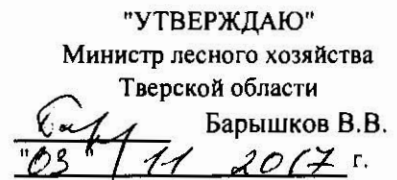 "УТВЕРЖДАЮ"
Министр лесного хозяйства
Тверской области
Барышков В.В.
"03" 11 2017 г.